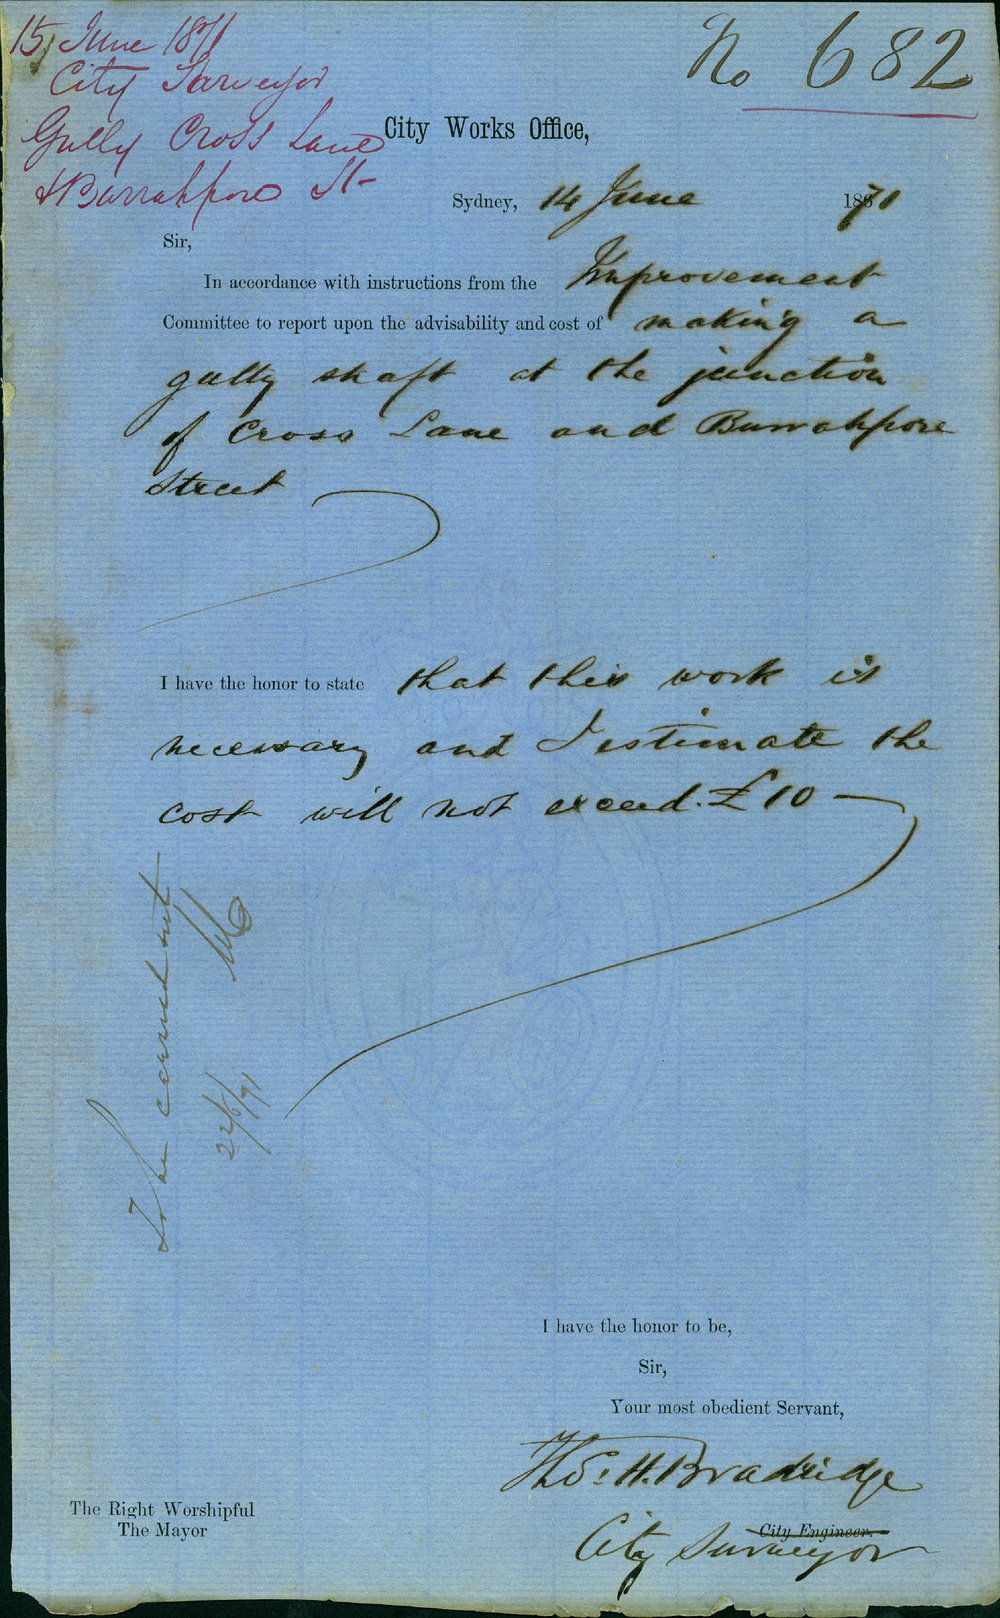 15 June 1871
City Surveyor
Gully Cross Lane
& Burrahpore St
No 682
City Works Office,
Sydney, 14 June 1871
Sir,
In accordance with instructions from the Improvement
Committee to report upon the advisability and cost of making a
gully shaft at the junction
of Cross Lane and Burrahpore
Street
I have the honor to state that this work is
necessary and I estimate the
cost will not exceed £10
To be carried out
22/6/71
I have the honor to be,
Sir,
Your most obedient Servant,
Thos. H. Bradridge
City Engineer.
City Surveyor
The Right Worshipful
The Mayor